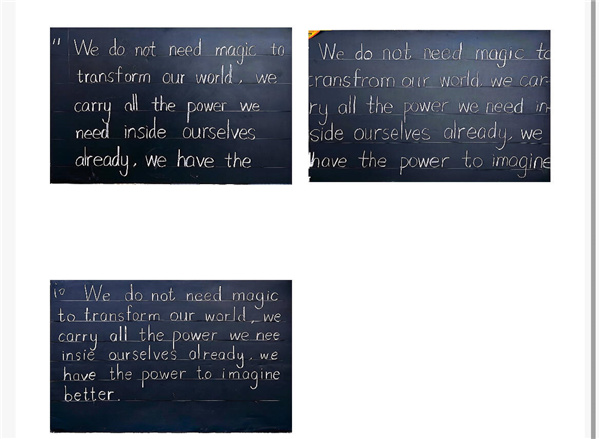 " We do not need magic to
transform our world, we
carry all the power we
need inside ourselves
already, we have the
We do not need magic to
transfrom our world, we car-
ry all the power we need in-
side ourselves already, we
have the power to imagine
10 We do not need magic
to transform our world, we
carry all the power we nee
insie ourselves already, we
have the power to imagine
better.